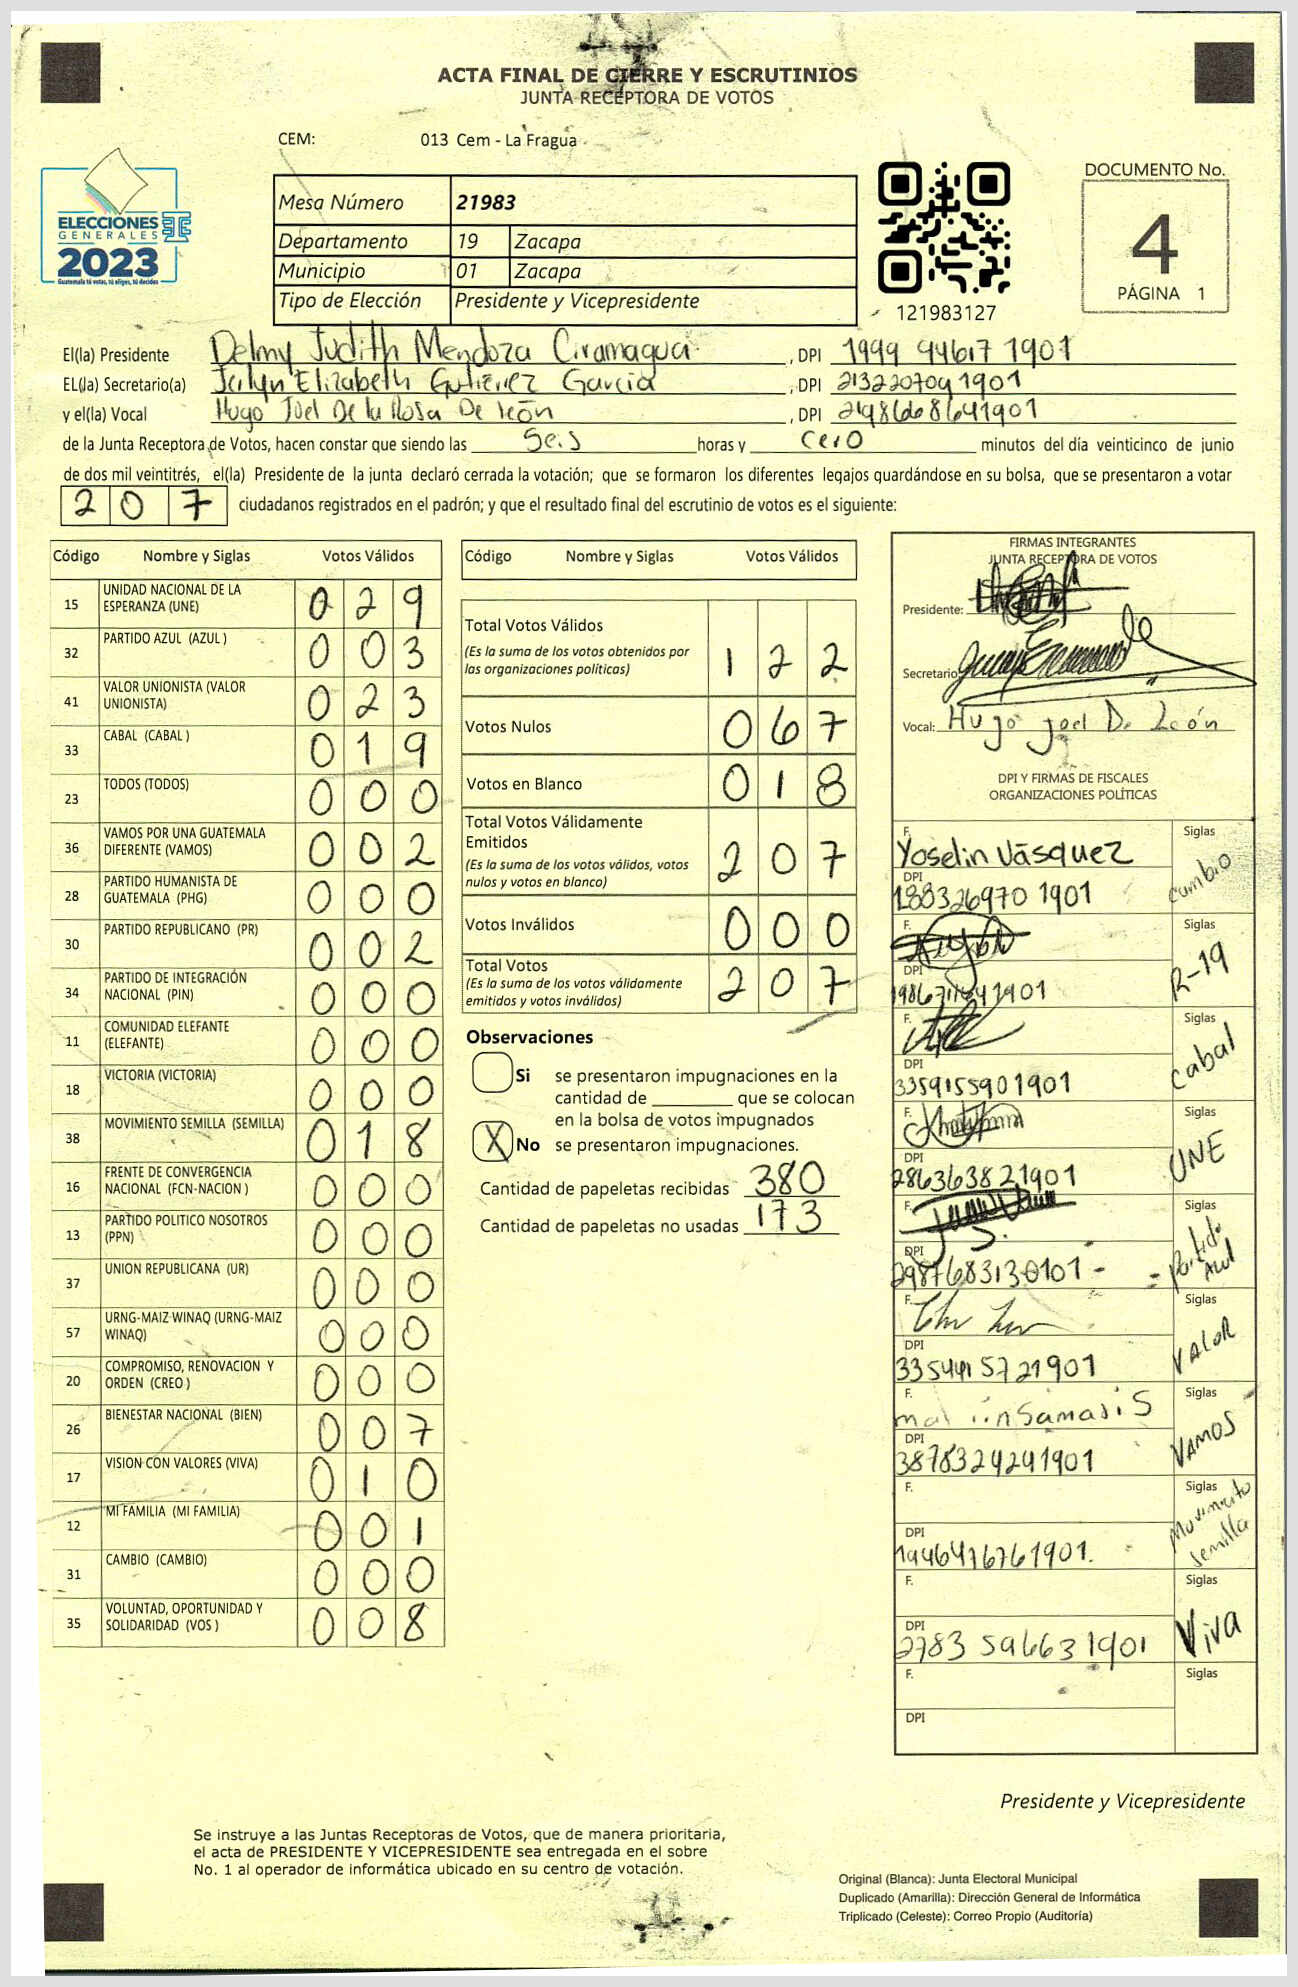 ACTA FINAL DE CIERRE Y ESCRUTINIOS
JUNTA RECEPTORA DE VOTOS
CEM: 013 Cem - La Fragua
ELECCIONES
GENERALES
2023
Guatemala tú votas, tú eliges, tú decides
Mesa Número 21983
Departamento 19 Zacapa
Municipio 01 Zacapa
Tipo de Elección Presidente y Vicepresidente
121983127
DOCUMENTO No.
4
PÁGINA 1
El(la) Presidente Delmy Judith Mendoza Ciramagua , DPI 1999 94617 1901
EL(la) Secretario(a) Elizabeth Gutiérrez García , DPI 213220709 1901
y el(la) Vocal Hugo Joel De la Rosa De león , DPI 2198668641901
de la Junta Receptora de Votos, hacen constar que siendo las Seis horas y cero minutos del día veinticinco de junio
de dos mil veintitrés, el(la) Presidente de la junta declaró cerrada la votación; que se formaron los diferentes legajos guardándose en su bolsa, que se presentaron a votar
207 ciudadanos registrados en el padrón; y que el resultado final del escrutinio de votos es el siguiente:
Código Nombre y Siglas Votos Válidos
15 UNIDAD NACIONAL DE LA ESPERANZA (UNE) 0 2 9
32 PARTIDO AZUL (AZUL ) 0 0 3
41 VALOR UNIONISTA (VALOR UNIONISTA) 0 2 3
33 CABAL (CABAL ) 0 1 9
23 TODOS (TODOS) 0 0 0
36 VAMOS POR UNA GUATEMALA DIFERENTE (VAMOS) 0 0 2
28 PARTIDO HUMANISTA DE GUATEMALA (PHG) 0 0 0
30 PARTIDO REPUBLICANO (PR) 0 0 2
34 PARTIDO DE INTEGRACIÓN NACIONAL (PIN) 0 0 0
11 COMUNIDAD ELEFANTE (ELEFANTE) 0 0 0
18 VICTORIA (VICTORIA) 0 0 0
38 MOVIMIENTO SEMILLA (SEMILLA) 0 1 8
16 FRENTE DE CONVERGENCIA NACIONAL (FCN-NACION ) 0 0 0
13 PARTIDO POLITICO NOSOTROS (PPN) 0 0 0
37 UNION REPUBLICANA (UR) 0 0 0
57 URNG-MAIZ-WINAQ (URNG-MAIZ WINAQ) 0 0 0
20 COMPROMISO, RENOVACION Y ORDEN (CREO ) 0 0 0
26 BIENESTAR NACIONAL (BIEN) 0 0 7
17 VISION CON VALORES (VIVA) 0 1 0
12 MI FAMILIA (MI FAMILIA) 0 0 1
31 CAMBIO (CAMBIO) 0 0 0
35 VOLUNTAD, OPORTUNIDAD Y SOLIDARIDAD (VOS ) 0 0 8
Código Nombre y Siglas Votos Válidos
Total Votos Válidos 1 2 2
(Es la suma de los votos obtenidos por
las organizaciones políticas)
Votos Nulos 0 6 7
Votos en Blanco 0 1 8
Total Votos Válidamente
Emitidos 2 0 7
(Es la suma de los votos válidos, votos
nulos y votos en blanco)
Votos Inválidos 0 0 0
Total Votos 2 0 7
(Es la suma de los votos válidamente
emitidos y votos inválidos)
Observaciones
Si se presentaron impugnaciones en la
cantidad de ________ que se colocan
en la bolsa de votos impugnados
X No se presentaron impugnaciones.
Cantidad de papeletas recibidas 380
Cantidad de papeletas no usadas 173
FIRMAS INTEGRANTES
JUNTA RECEPTORA DE VOTOS
Presidente:
Secretario
Vocal: Hugo Joel De León
DPI Y FIRMAS DE FISCALES
ORGANIZACIONES POLÍTICAS
F. Yoselin Vásquez Siglas cambio
DPI 188326970 1901
F. Siglas R-19
DPI
F. Siglas cabal
DPI 3359155901901
F. Siglas UNE
DPI 286363821901
F. Siglas Partido Azul
DPI 2987683130101 -
F. Siglas VALOR
DPI 3354415721901
F. Siglas VAMOS
DPI 3878324241901
F. Siglas Movimiento Semilla
DPI 1946476761901.
F. Siglas Viva
DPI 2783 59663 1901
F. Siglas
DPI
Presidente y Vicepresidente
Se instruye a las Juntas Receptoras de Votos, que de manera prioritaria,
el acta de PRESIDENTE Y VICEPRESIDENTE sea entregada en el sobre
No. 1 al operador de informática ubicado en su centro de votación.
Original (Blanca): Junta Electoral Municipal
Duplicado (Amarilla): Dirección General de Informática
Triplicado (Celeste): Correo Propio (Auditoría)